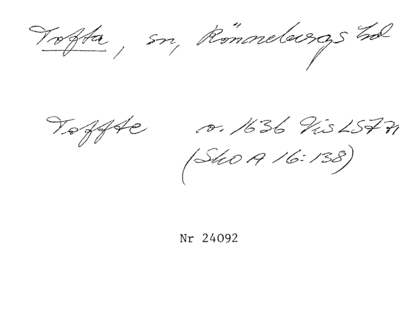 Tofta, sn, Rönnebergs hd
Toffte v. 1636 Vis LS7n
(SkO A 16:138)
Nr 24092